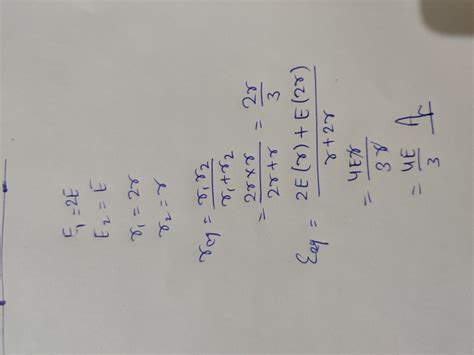 E₁ = 2E
E₂ = E
r₁ = 2r
r₂ = r
r_eq = r₁r₂ / r₁+r₂
= 2r×r / 2r+r = 2r / 3
E_eq = 2E(r) + E(2r) / r+2r
= 4Er / 3r
= 4E / 3